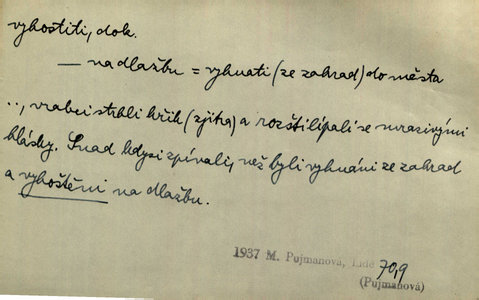 vyhostiti, dok.
— na dlažbu = vyhnati (ze zahrad) do města
.., vrabci strhli křik (zjitra) a rozštilípali se mrazivými
hlásky. Snad kdysi zpívali, než byli vyhnáni ze zahrad
a vyhoštěni na dlažbu.
1937 M. Pujmanová, Lidé 70,9
(Pujmanová)